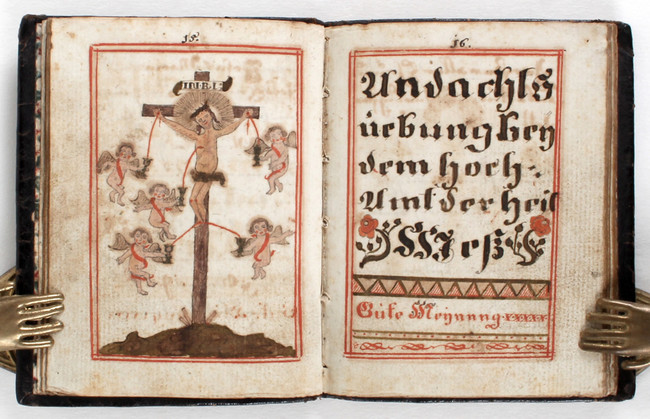 15.
INRI
16.
Andachts
üebung bey
dem hoch-
Amt der heil
Meß
Gute Meynung